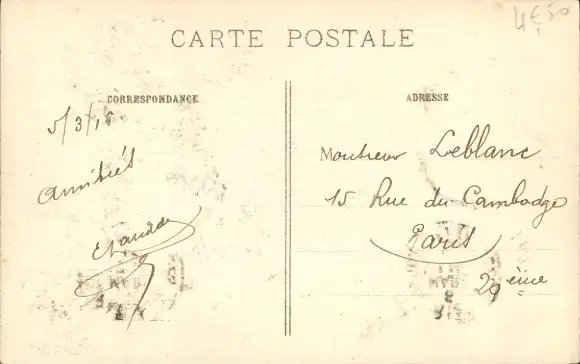 4€50
CARTE POSTALE
CORRESPONDANCE
ADRESSE
5/3/18
Amitiés
Monsieur Leblanc
15 Rue du Cambodge
Paris
20 ème